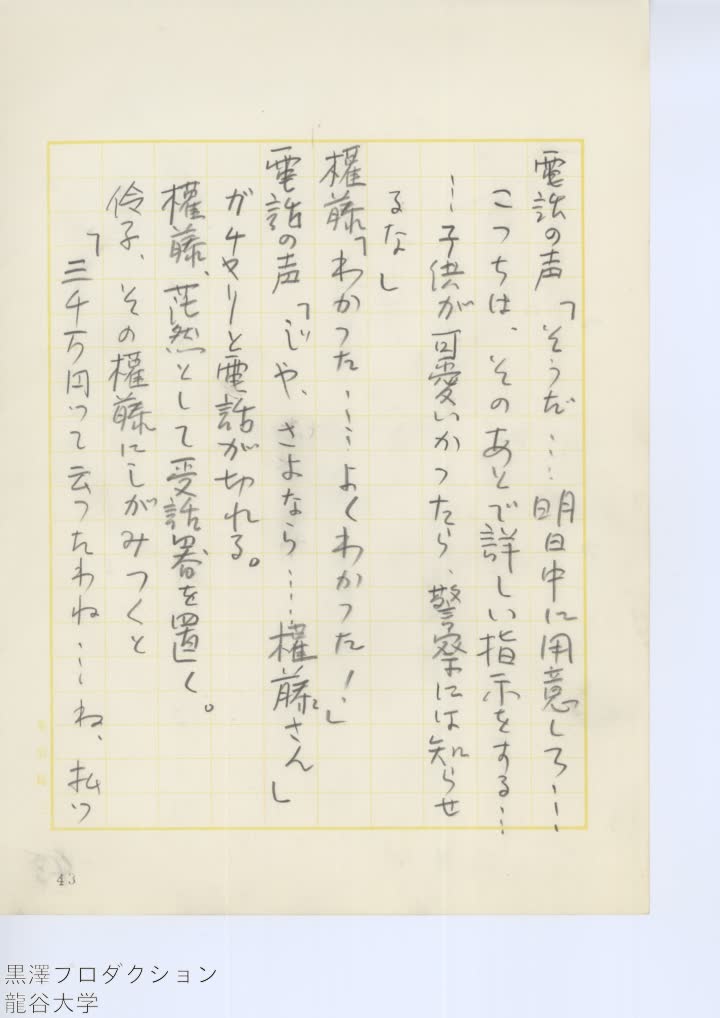 電話の声「そうだ……明日中に用意しろ……
こつちは、そのあとで詳しい指示をする…
…子供が可愛いかつたら、警察には知らせ
るな」
權藤「わかつた……よくわかつた！」
電話の声「じや、さよなら……權藤さん」
ガチヤリと電話が切れる。
權藤、茫然として受話器を置く。
伶子、その權藤にしがみつくと
「三千万円って云つたわね……ね、払ッ
43
黒澤プロダクション
龍谷大学